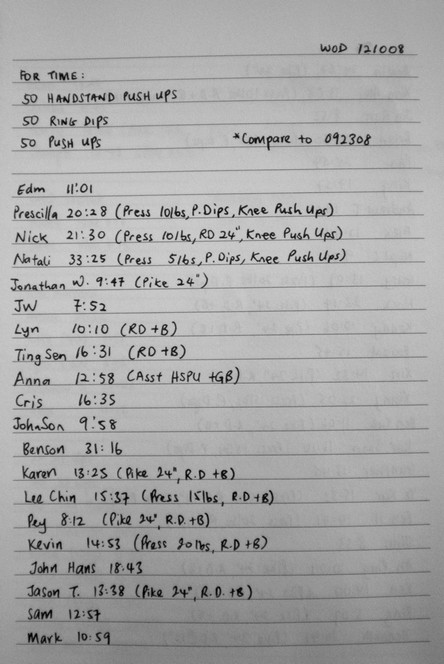 WOD 121008
FOR TIME:
50 HANDSTAND PUSH UPS
50 RING DIPS
50 PUSH UPS *Compare to 092308
Edm 11:01
Prescilla 20:28 (Press 10lbs, P.Dips, Knee Push Ups)
Nick 21:30 (Press 10lbs, RD 24", Knee Push Ups)
Natali 33:25 (Press 5lbs, P.Dips, Knee Push Ups)
Jonathan W. 9:47 (Pike 24")
JW 7:52
Lyn 10:10 (RD +B)
Ting Sen 16:31 (RD +B)
Anna 12:58 (Asst HSPU +GB)
Cris 16:35
JohnSon 9:58
Benson 31:16
Karen 13:25 (Pike 24", R.D +B)
Lee Chin 15:37 (Press 15lbs, R.D +B)
Pey 8:12 (Pike 24", R.D. +B)
Kevin 14:53 (Press 20lbs, R.D +B)
John Hans 18:43
Jason T. 13:38 (Pike 24", R.D. +B)
Sam 12:57
Mark 10:59